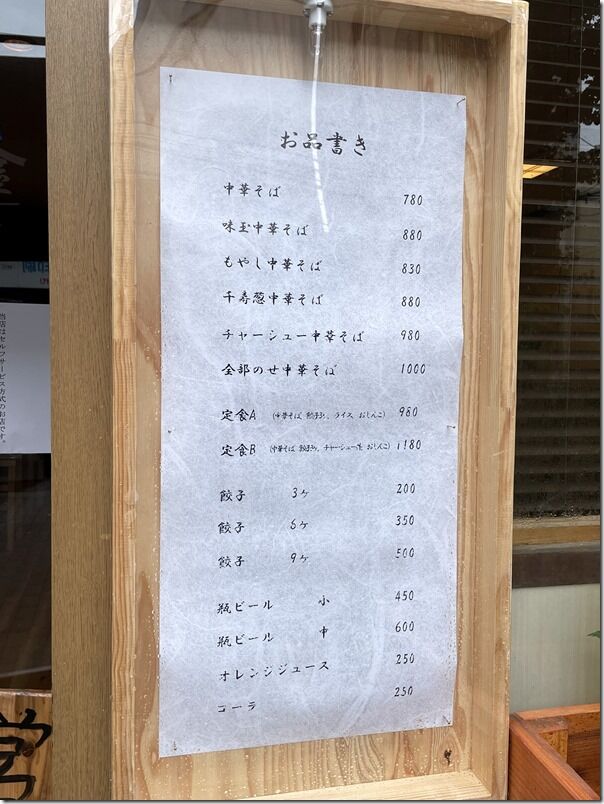 お品書き
中華そば 780
味玉中華そば 880
もやし中華そば 830
千寿葱中華そば 880
チャーシュー中華そば 980
全部のせ中華そば 1000
定食A (中華そば、餃子3ヶ、ライス、おしんこ) 980
定食B (中華そば、餃子3ヶ、チャーシュー丼、おしんこ) 1180
餃子 3ヶ 200
餃子 6ヶ 350
餃子 9ヶ 500
瓶ビール 小 450
瓶ビール 中 600
オレンジジュース 250
コーラ 250
当店はセルフサービス方式のお店です。
営